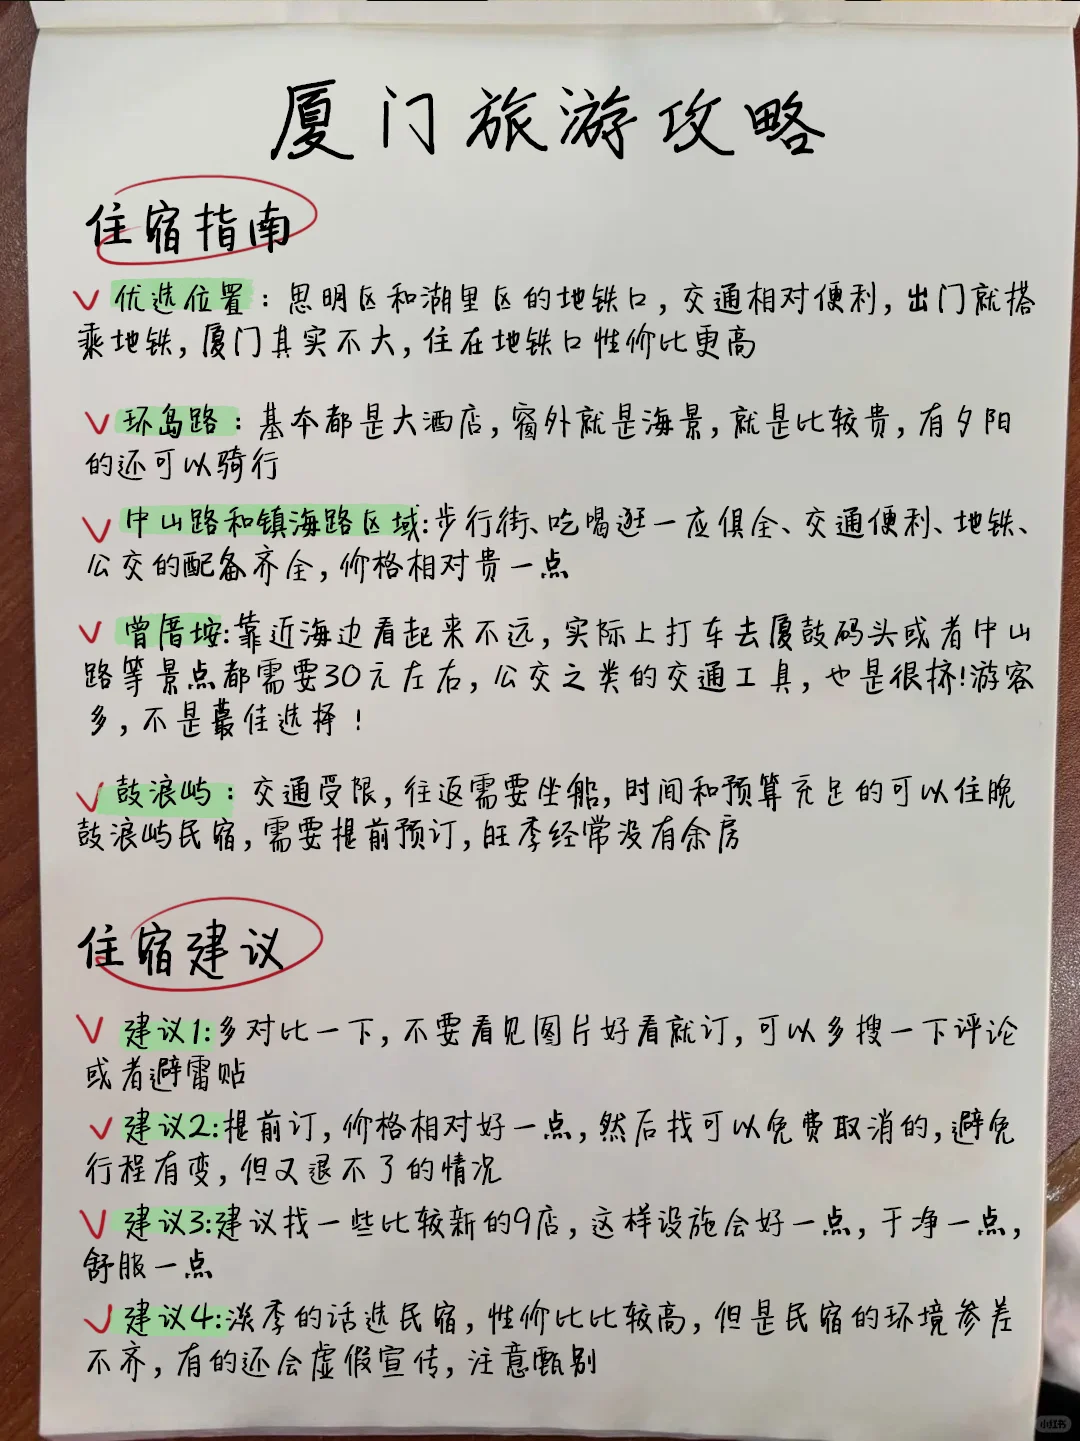 厦门旅游攻略
住宿指南
优选位置：思明区和湖里区的地铁口，交通相对便利，出门就搭
乘地铁，厦门其实不大，住在地铁口性价比更高
环岛路：基本都是大酒店，窗外就是海景，就是比较贵，有夕阳
的还可以骑行
中山路和镇海路区域:步行街、吃喝逛一应俱全、交通便利、地铁、
公交的配备齐全，价格相对贵一点
曾厝垵:靠近海边看起来不远，实际上打车去厦鼓码头或者中山
路等景点都需要30元左右，公交之类的交通工具，也是很挤!游客
多，不是最佳选择！
鼓浪屿：交通受限，往返需要坐船，时间和预算充足的可以住晚
鼓浪屿民宿，需要提前预订，旺季经常没有余房
住宿建议
建议1:多对比一下，不要看见图片好看就订，可以多搜一下评论
或者避雷贴
建议2:提前订，价格相对好一点，然后找可以免费取消的，避免
行程有变，但又退不了的情况
建议3:建议找一些比较新的9店，这样设施会好一点，干净一点，
舒服一点
建议4:淡季的话选民宿，性价比比较高，但是民宿的环境参差
不齐，有的还会虚假宣传，注意甄别
小红书